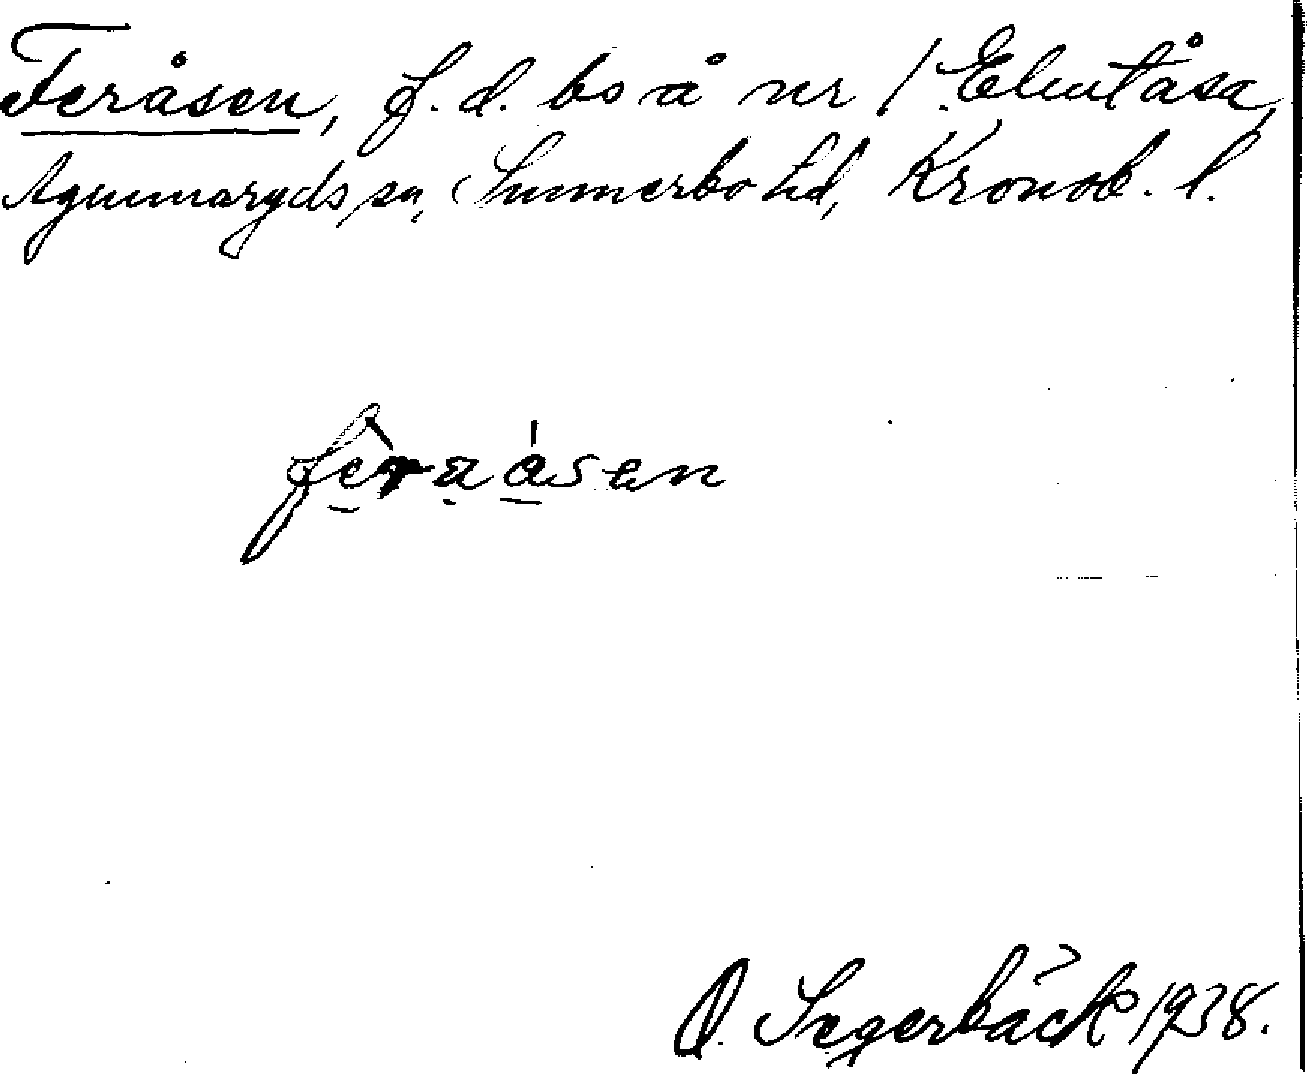 Feråsen, f. d. bo å nr 1 Elmtåsa,
Agunnaryds sn, Sunnerbo hd, Kronob. l.
feraåsen
O. Segerbäck 1938.